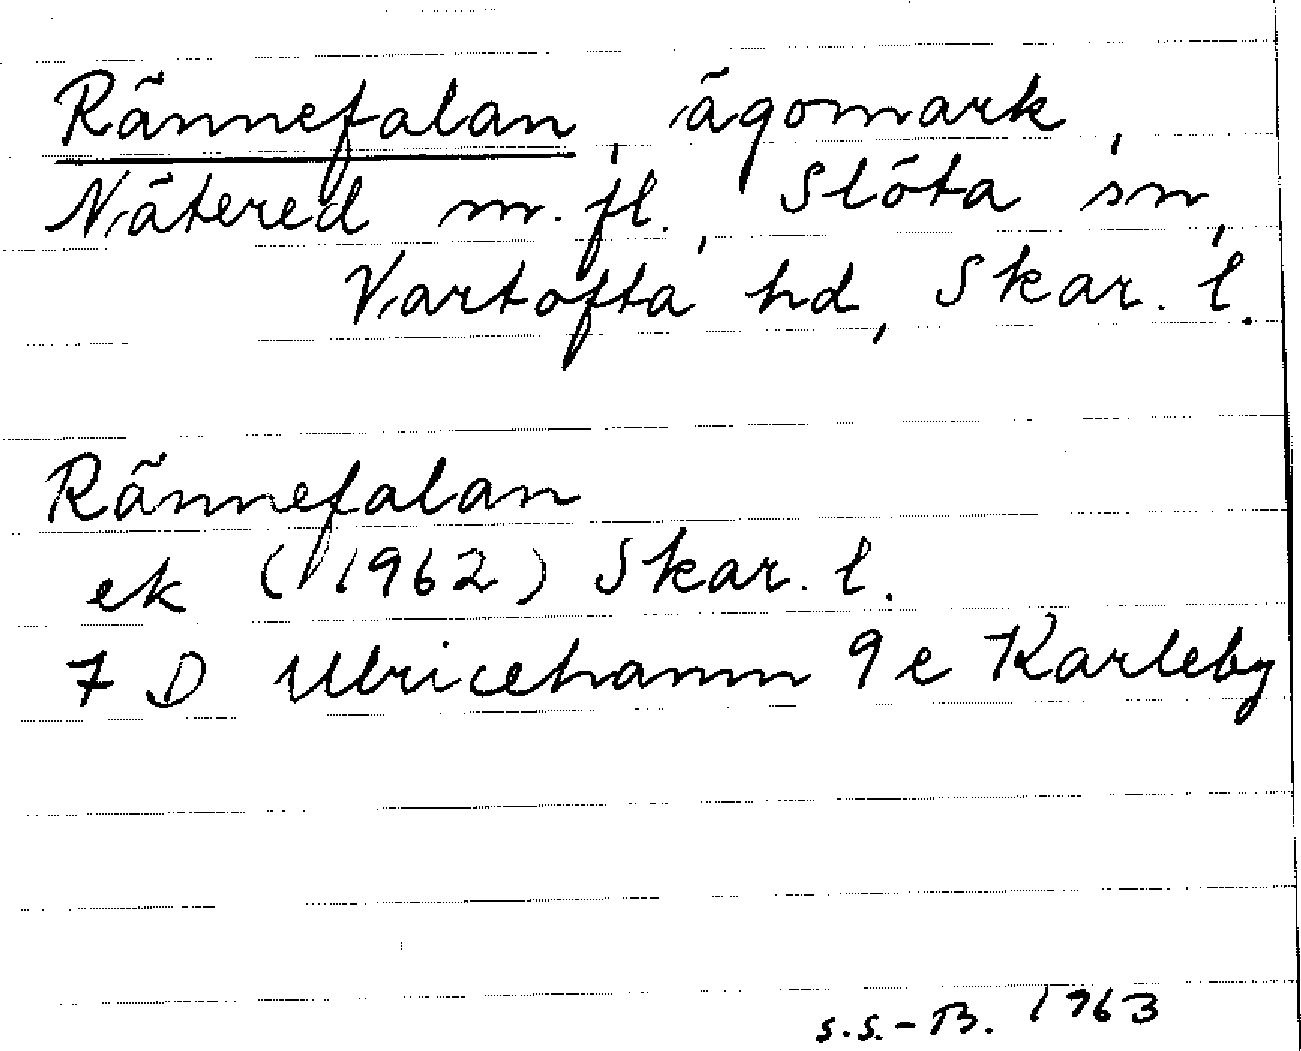 Rännefalan, ägomark,
Nätered m. fl., Slöta sn,
Vartofta hd, Skar. l.
Rännefalan
ek (1962) Skar. l.
7 D Ulricehamn 9 e Karleby
S.S.-B. 1963